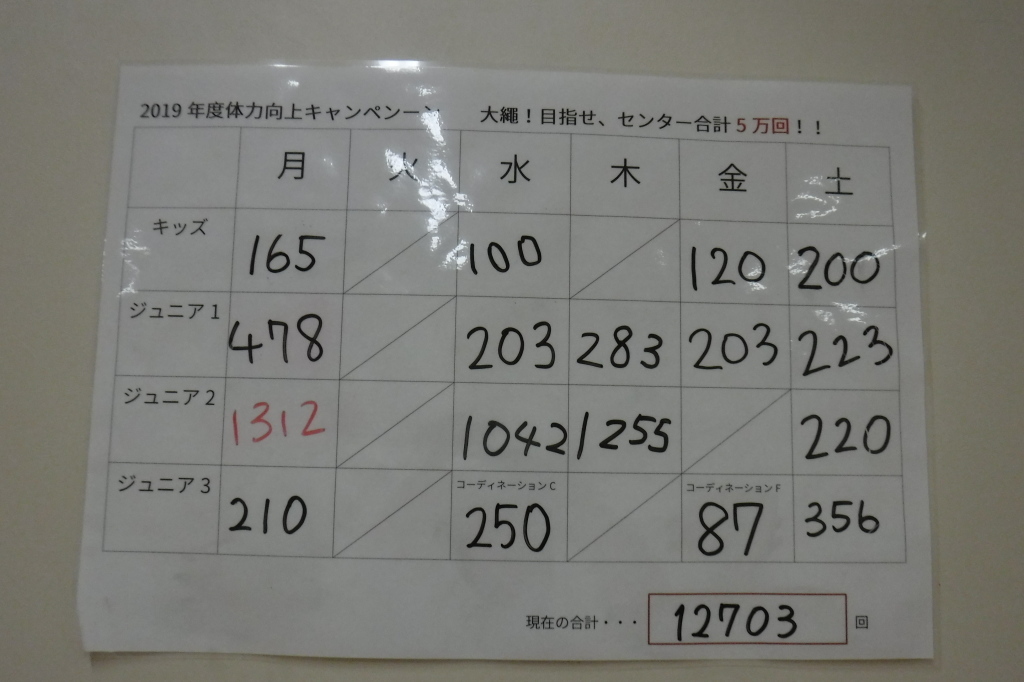 2019 年度体力向上キャンペンーン 大繩！目指せ、センター合計 5 万回！！
月 火 水 木 金 土
キッズ 165 100 120 200
ジュニア 1 478 203 283 203 223
ジュニア 2 1312 1042 1255 220
ジュニア 3 210 コーディネーション C 250 コーディネーション F 87 356
現在の合計・・・ 12703 回